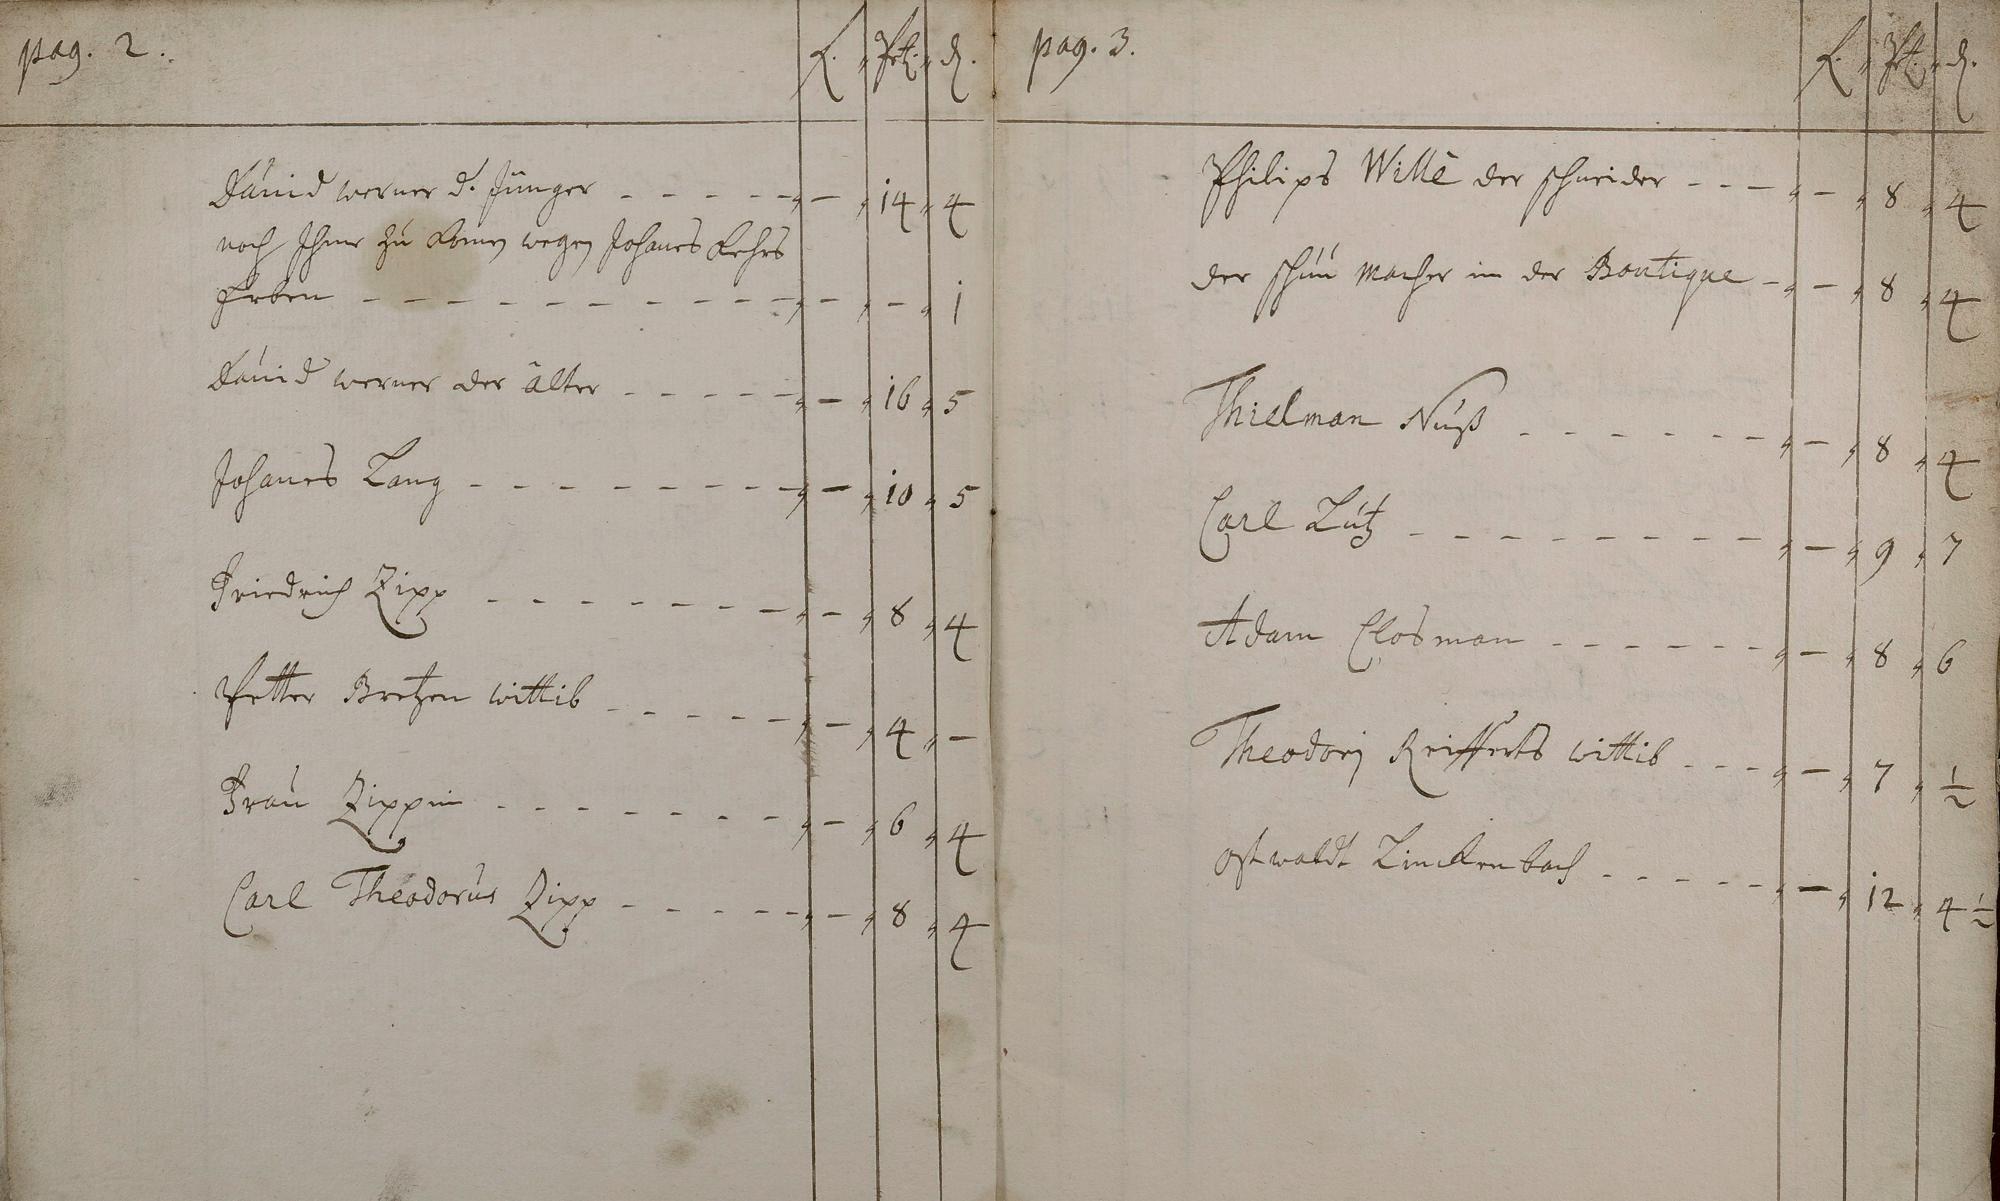 pag. 2.
f. Pet. d.
David werner d. Jünger - - - - - - 14 4
noch Ihme zu komen wegen Johanes Kehrs
Erben - - - - - - - - - - - - - 1
David werner der älter - - - - - - 16 5
Johanes Lang - - - - - - - - - 10 5
Friedrich Zipp - - - - - - - - 8 4
Petter Bretzen wittib - - - - - - 4 -
Frau Zippin - - - - - - - - 6 4
Carl Theodorus Zipp - - - - - - 8 4
pag. 3.
f. Pet. d.
Philips Wille der schneider - - - - 8 4
der schuu macher in der Boutique - - 8 4
Thielman Nuß - - - - - - - - 8 4
Carl Lutz - - - - - - - - - - 9 7
Adam Closman - - - - - - - 8 6
Theodorj Reifferts wittib - - - - 7 ½
ostwaldt Linckenbach - - - - - - 12 4½